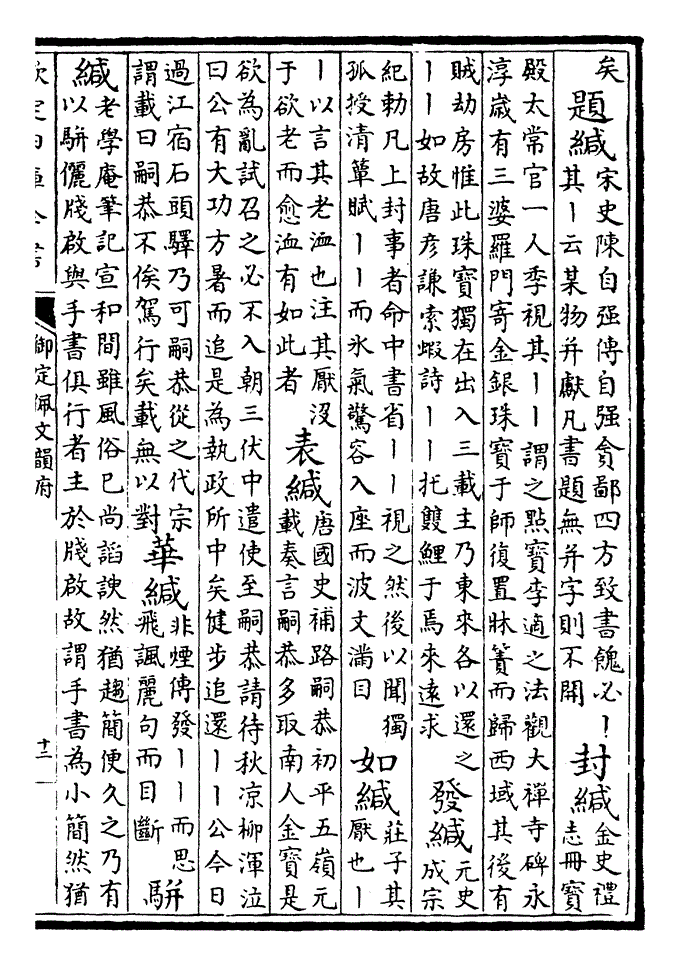 矣
題緘
宋史陳自强傳自强貪鄙四方致書餽必丨
其丨云某物并獻凡書題無并字則不開
封緘
金史禮
志册寳
殿太常官一人季視其丨丨謂之點寳李適之法觀大禪寺碑永
淳歳有三婆羅門寄金銀珠寳于師復置牀簀而歸西域其後有
賊劫房惟此珠寳獨在出入三載主乃東來各以還之
丨丨如故唐彦謙索蝦詩丨丨托雙鯉于焉來遠求
發緘
元史
成宗
紀勅凡上封事者命中書省丨丨視之然後以聞獨
孤授清簟賦丨丨而氷氣驚容入座而波文滿目
如緘
莊子其
厭也丨
丨以言其老洫也注其厭没
于欲老而愈洫有如此者
表緘
唐國史補路嗣恭初平五嶺元
載奏言嗣恭多取南人金寳是
欲為亂試召之必不入朝三伏中遣使至嗣恭請待秋凉柳渾泣
曰公有大功方暑而追是為執政所中矣健步追還丨丨公今日
過江宿石頭驛乃可嗣恭從之代宗
謂載曰嗣恭不俟駕行矣載無以對
華緘
非煙傳發丨丨而思
飛諷麗句而目斷
駢
緘
老學庵筆記宣和間雖風俗已尚謟諛然猶趨簡便久之乃有
以駢儷牋啟與手書俱行者主於牋啟故謂手書為小簡然猶
欽定四庫全書
御定佩文韻府
十二